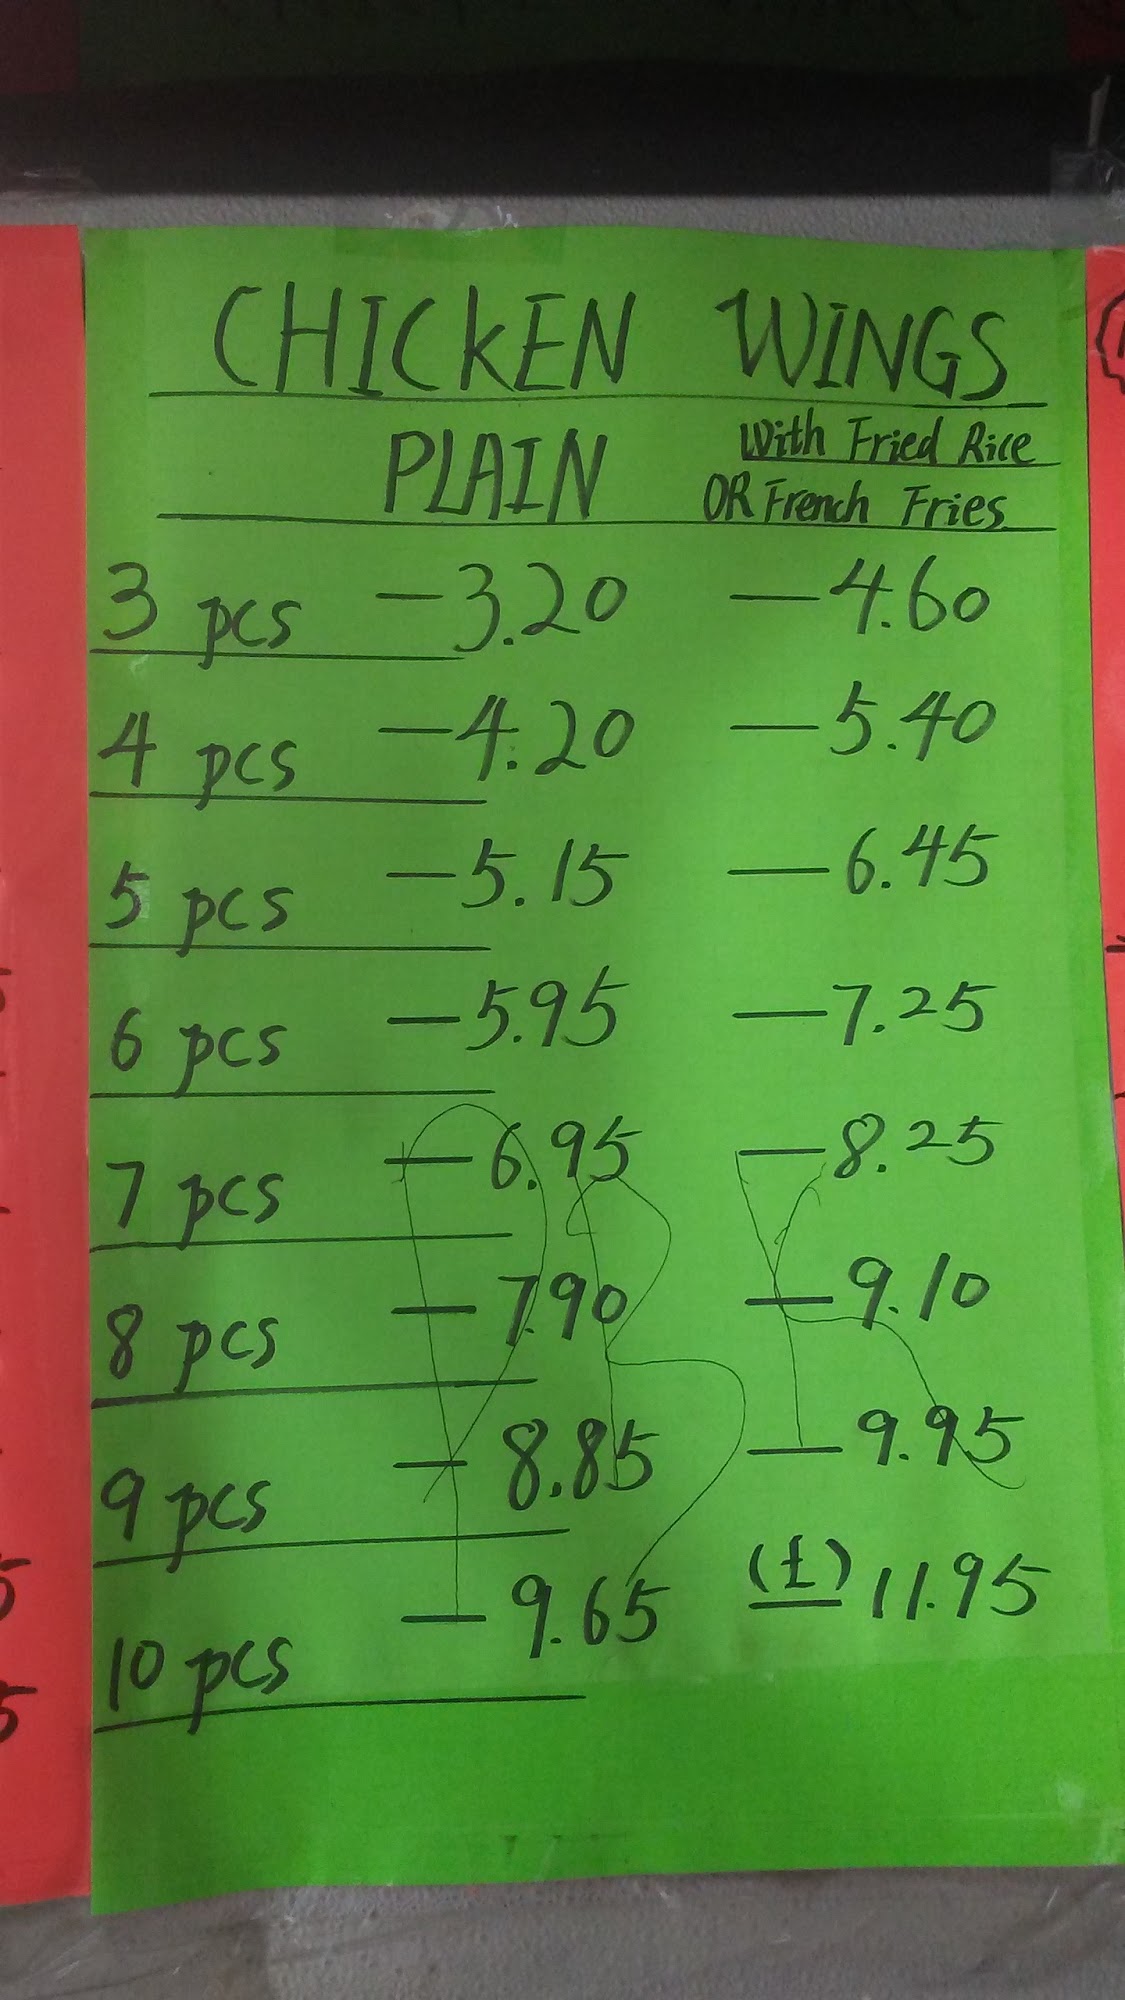 CHICKEN WINGS
PLAIN With Fried Rice
OR French Fries
3 pcs — 3.20 — 4.60
4 pcs — 4.20 — 5.40
5 pcs — 5.15 — 6.45
6 pcs — 5.95 — 7.25
7 pcs — 6.95 — 8.25
8 pcs — 7.90 — 9.10
9 pcs — 8.85 — 9.95
10 pcs — 9.65 (£) 11.95